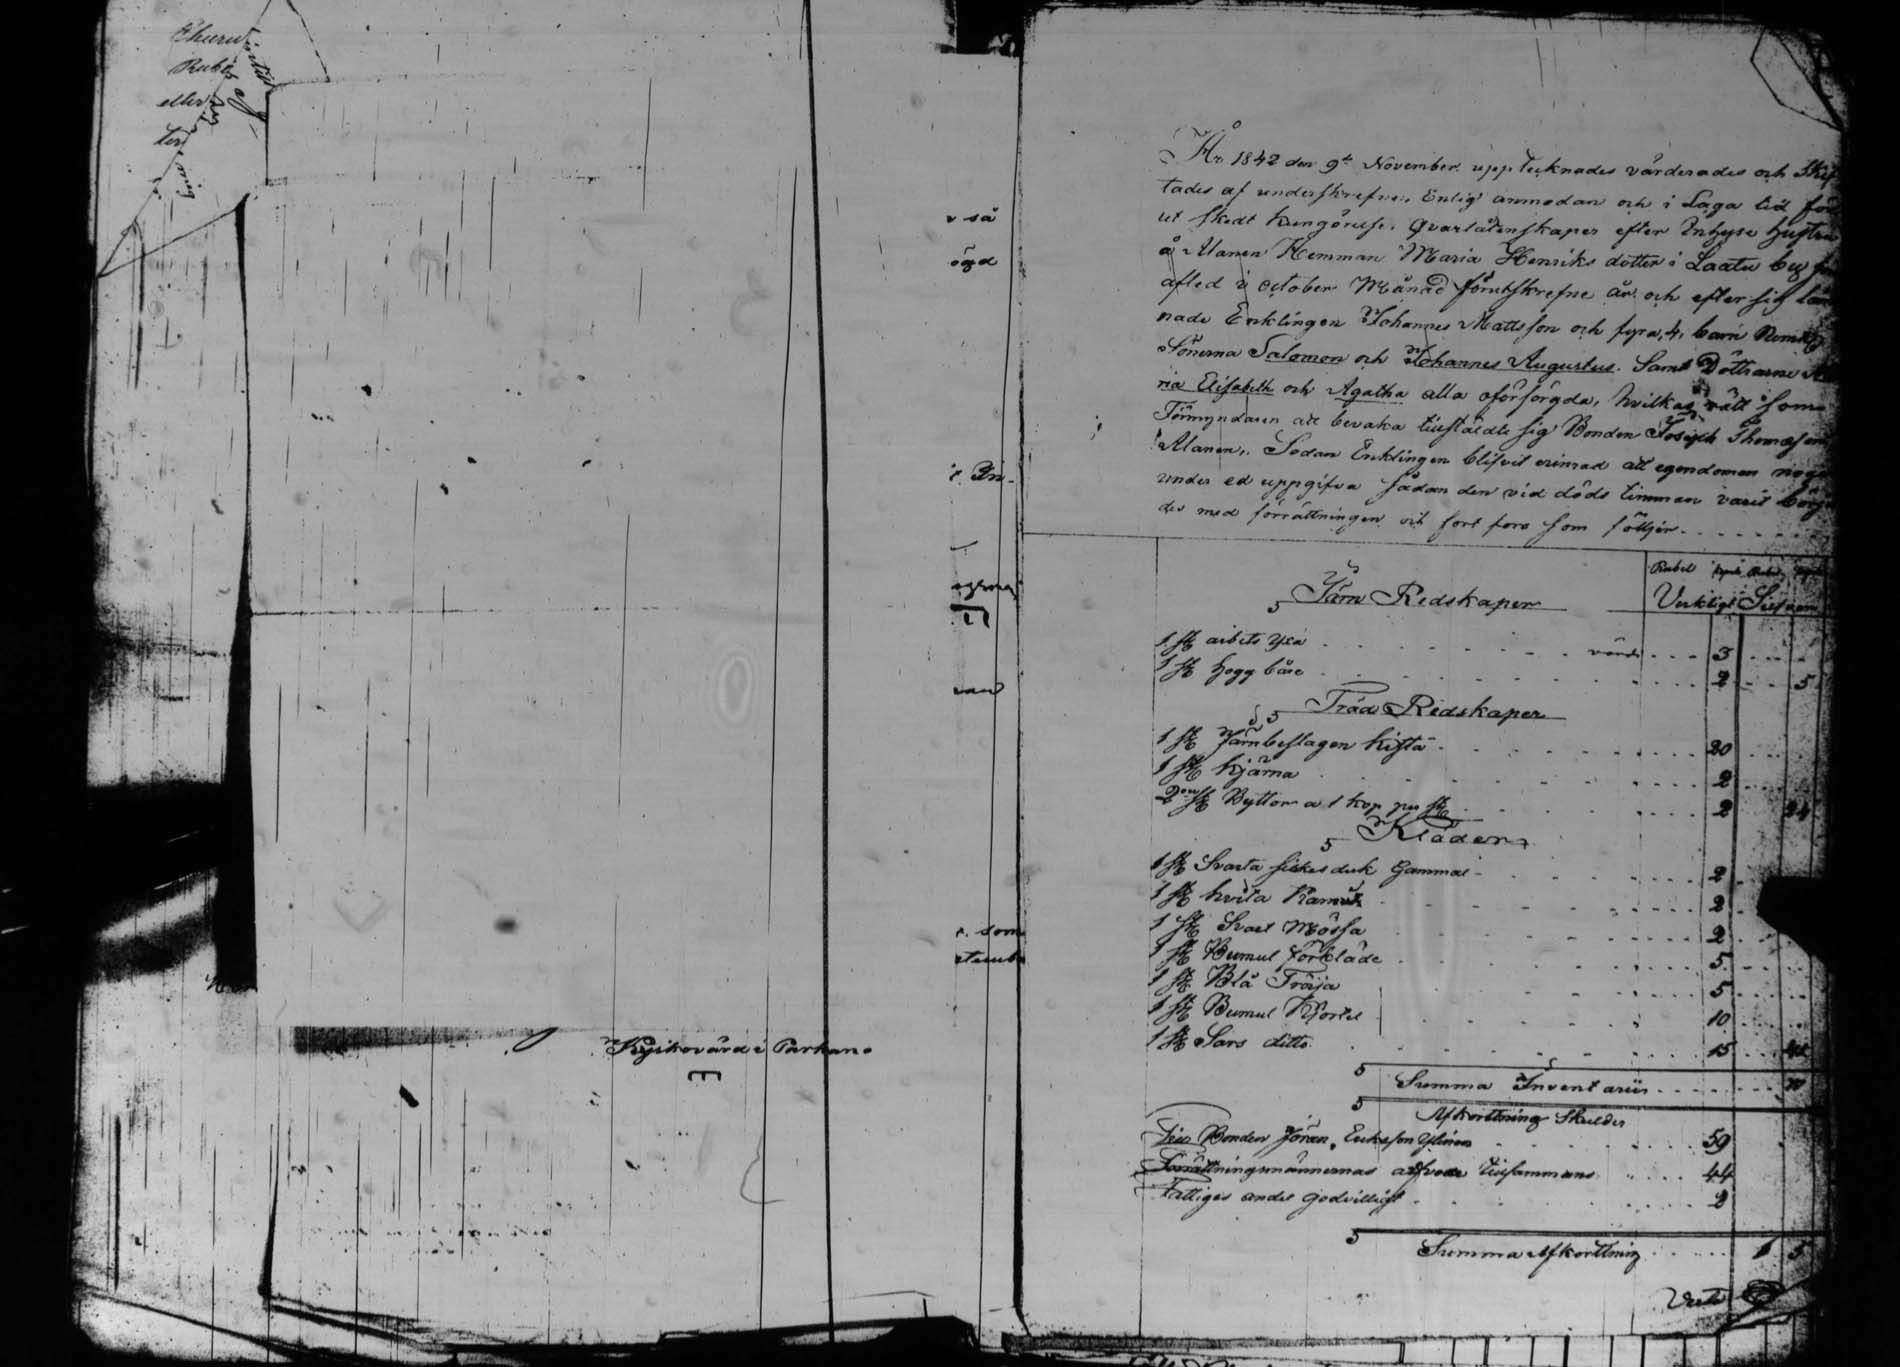 Churu
Rube
eller
ter
v så
ögd
r. som
Kyrkovärd i Parkano
År 1842 den 9de November upptecknades värderades och Skif
tades af underskrefne, Enlig anmodan och i Laga tid för
ut skedt kungörelse, qvarlåtenskapen efter Inhyse hustru
å Alanen Hemman Maria Henriks dotter i Laatu by
afled i October Månad förutskrefne år och efter sig läm
nade Enklingen Johannes Mattsson och fyra, 4, barn
Sönerna Salomon och Johannes Augustus. Samt Döttrarne Ma
ria Elisabeth och Agatha alla oförsörgda, hvilkas rätt som
Förmyndaren att bevaka tillstäldte sig Bonden Joseph Thomasson
Alanen. Sedan Enklingen blifvit erinrad att egendomen noga
under ed uppgifva sådan den vid döds timman varit börja
des med förrättningen och fort fors som följer
Rubel Kopek Rubel Kopek
Järn Redskaper Verkligt Silfver
1 st arbets yxa värd 3
1 st hogg 2 5
Träd Redskaper
1 st Järnbeslagen kista 20
1 st kjärna 2
2ne st Byttor a 1 kop per st 2 24
Kläder
1 st Svarta silkes duk Gammal 2
1 st hvita 2
1 st Svart Mössa 2
1 st Bumul förkläde 5
1 st Blå Tröija 5
1 st Bumul Kjortel 10
1 st Sars ditto 15 41
Summa Inventarii 70
Afkorttning Skulder
Till Bonden Jöran Eriksson Ylinen 59
Förrättningsmännernas arfvode tillsammans 44
Fattiges andel godvilligt 2
Summa Afkorttning 1 5